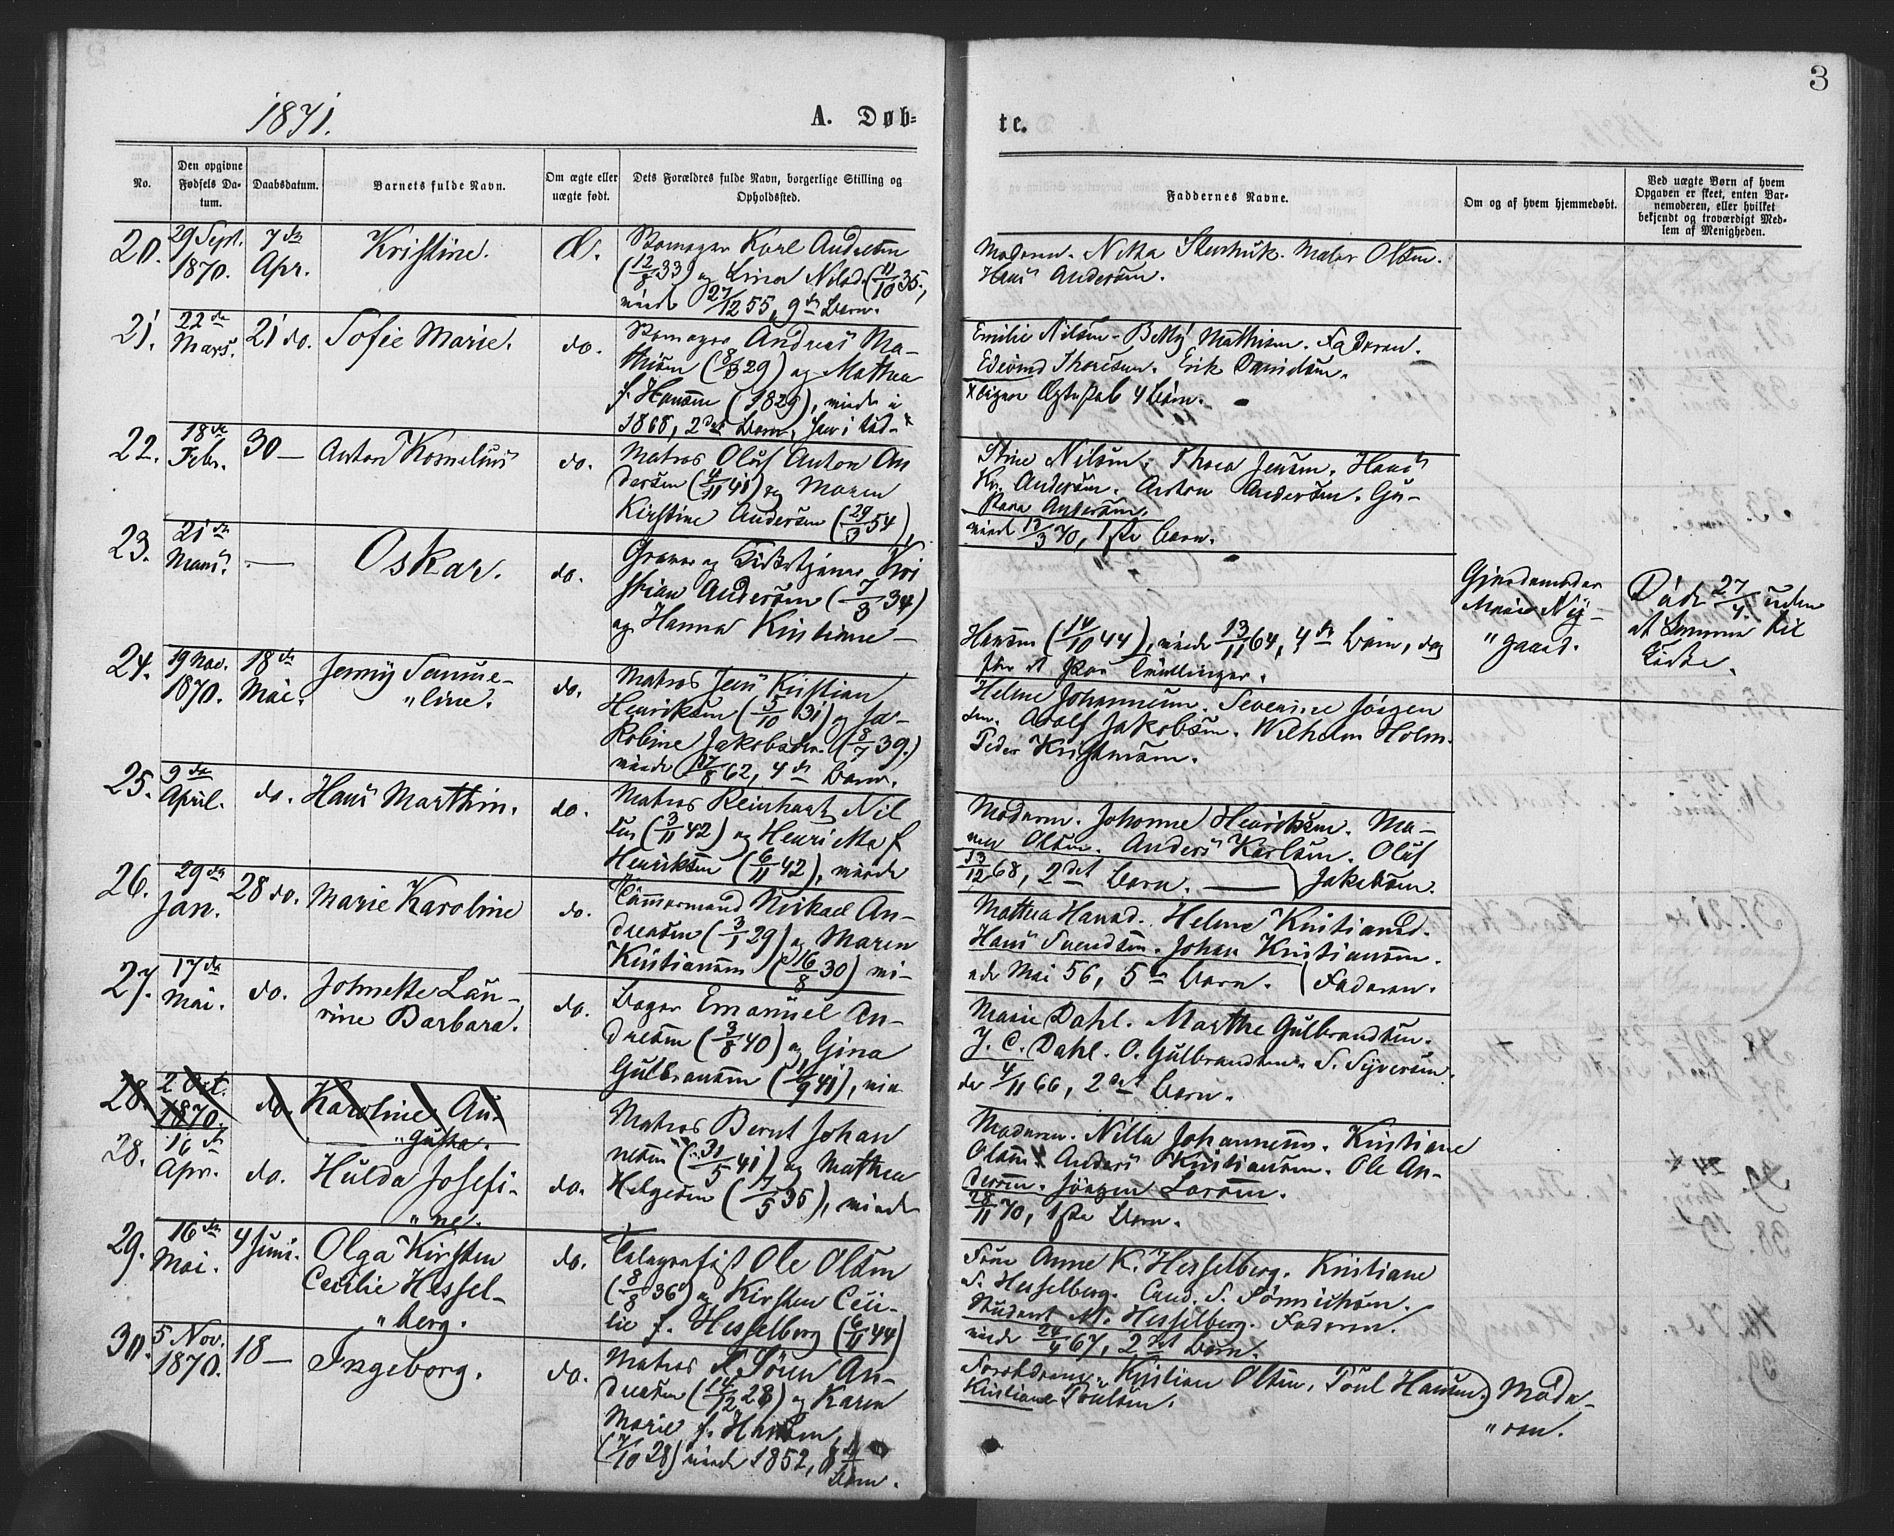 3
1871.
A. Døb=
te.
No.
Den opgivne Fødsels Da- tum.
Daabsdatum.
Barnets fulde Navn.
Om ægte eller uægte født.
Dets Forældres fulde Navn, borgerlige Stilling og Opholdssted.
Faddernes Navne.
Om og af hvem hjemmedøbt.
Ved uægte Børn af hvem Opgaven er skeet, enten Bar- nemoderen, eller hvilket bekjendt og troværdigt Med- lem af Menigheden.
20.
29 Sept.
1870.
7de
Apr.
Kristine.
Karl Andersen
(12/8 33) og Nilsd. (11/10 35,
27/12 55, 9de Barn.
Moderen.
Olsen.
Hans Andersen.
21.
22de
Mars.
21 do.
Sofie Marie.
do.
Andreas Ma-
thisen (8/3 29) og Mathea
f. Hansen (1829), viede i
1868, 2det Barn,
Emilie Nilsen. Betty Mathisen. Faderen.
Thoresen. Erik Davidsen.
Ægteskab 4 Børn.
22.
18de
Febr.
30 —
Anton Kornelius
do.
Matros Oluf Anton An
dersen (4/11 41) og Maren
Kirstine Andersen (29/3 54),
Stine Nilsen. Thora Jensen. Hans
Kr. Andersen. Anton Andersen. Gu-
Andersen.
viede 12/3 70, 1ste Barn.
23.
21de
Mars.
—
Oskar.
do.
Graver og Kirketjener Kri
stian Andersen (7/3 34)
og Hanna Kristiane —
Hansen (14/10 44), viede 13/11 64, 4de Barn, dog
før et Par Tvillinger.
Gjordemoder
Marie Ny-
" gaard.
Døde 27/4 uden
at komme til
Kirke.
24.
19 Nov.
1870.
18de
Mai.
Jenny Samue-
" line.
do.
Matros Jens Kristian
Henriksen (5/10 31) og Ja-
kobine Jakobsdtr. (8/7 39.)
viede 17/8 62, 4de Barn.
Helene Johannesen. Severine Jørgen
sen. Adolf Jakobsen. Wilhelm Holm.
Peder Kristensen.
25.
9de
April.
do.
Hans Marthin.
do.
Matros Reinhart Nil
sen (3/11 42) og Henriette f.
Henriksen (6/11 42), viede
Moderen. Johanne Henriksen. Ma-
Olsen. Anders Karlsen. Oluf
13/12 68, 2det Barn. — Jakobsen.
26.
29de
Jan.
28 do.
Marie Karoline
do.
Tømmermand Mikael An-
dreasen (3/1 29) og Maren
Kristiansen (16/8 30) vi-
Mathea Hansd. Helene Kristiansd.
Hans Svendsen. Johan Kristiansen.
ede Mai 56, 5te Barn. Faderen.
27.
17de
Mai.
do.
Johnette Lau-
rine Barbara.
do.
Bager Emanuel An-
dresen (3/8 40) og Gina
Gulbransen (1/9 41), vie
Marie Dahl. Marthe Gulbrandsen.
J. C. Dahl. O. Gulbrandsen. S. Syversen.
de 4/11 66, 2det Barn.
28.
2 Oct.
1870.
do.
Karoline Au-
" gusta.
28.
16de
Apr.
do.
Hulda Josefi-
" ne.
do.
Matros Bernt Johan
nesen (31/5 41) og Mathea
Helgesen (7/5 35), viede
Moderen. Nilla Johannesen. Kristiane
Olsen. Anders Kristiansen. Ole An-
dersen. Jørgen Larsen.
28/11 70, 1ste Barn.
29.
16de
Mai.
4 Juni.
Olga Kirsten
Cecilie Hessel-
" berg.
do.
Telegrafist Ole Olsen
(8/8 36) og Kirsten Ceci-
lie f. Hesselberg (6/11 44)
Frue Anne K. Hesselberg. Kristiane
S. Hesselberg. Cand. S. Sønnichsen.
Student M. Hesselberg. Faderen.
viede 24/4 67, 2det Barn.
30.
5 Nov.
1870.
18 —
Ingeborg.
do.
Matros Søren An-
dreasen (14/12 28) og Karen
Marie f. Hansen,
(7/10 28) viede 1852, 8de
Barn.
Forældrene. Kristian Olsen. Poul Hansen. Mode-
Kristiane Poulsen.
" ren.